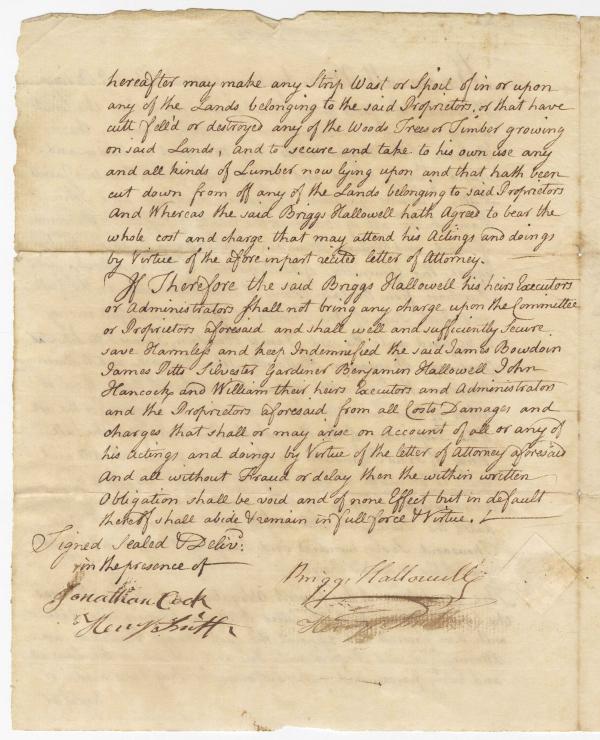 hereafter may make any Strip Wast or Spoil of in or upon
any of the Lands belonging to the said Proprietors, or that have
cutt fell'd or destroyed any of the Woods Trees or Timber growing
on said Lands, and to secure and take to his own use any
and all kinds of Lumber now lying upon and that hath been
cut down from off any of the Lands belonging to said Proprietors
And Whereas the said Briggs Hallowell hath Agreed to bear the
whole cost and charge that may attend his Actings and doings
by Virtue of the afore in part recited letter of Attorney.
If Therefore the said Briggs Hallowell his heirs Executors
or Administrators shall not bring any charge upon the Committee
or Proprietors aforesaid and shall well and sufficiently secure
save Harmless and keep Indemnified the said James Bowdoin
James Pitts Silvester Gardiner Benjamin Hallowell John
Hancock and William their heirs Executors and Administrators
and the Proprietors aforesaid from all Costs Damages and
charges that shall or may arise on Account of all or any of
his Actings and doings by Virtue of the letter of Attorney aforesaid
And all without Fraud or delay then the within written
Obligation shall be void and of none Effect but in default
thereof shall abide & remain in full force & Virtue.
Signed Sealed & Deliv:
in the presence of
Briggs Hallowell
Jonathan Cock
Henry